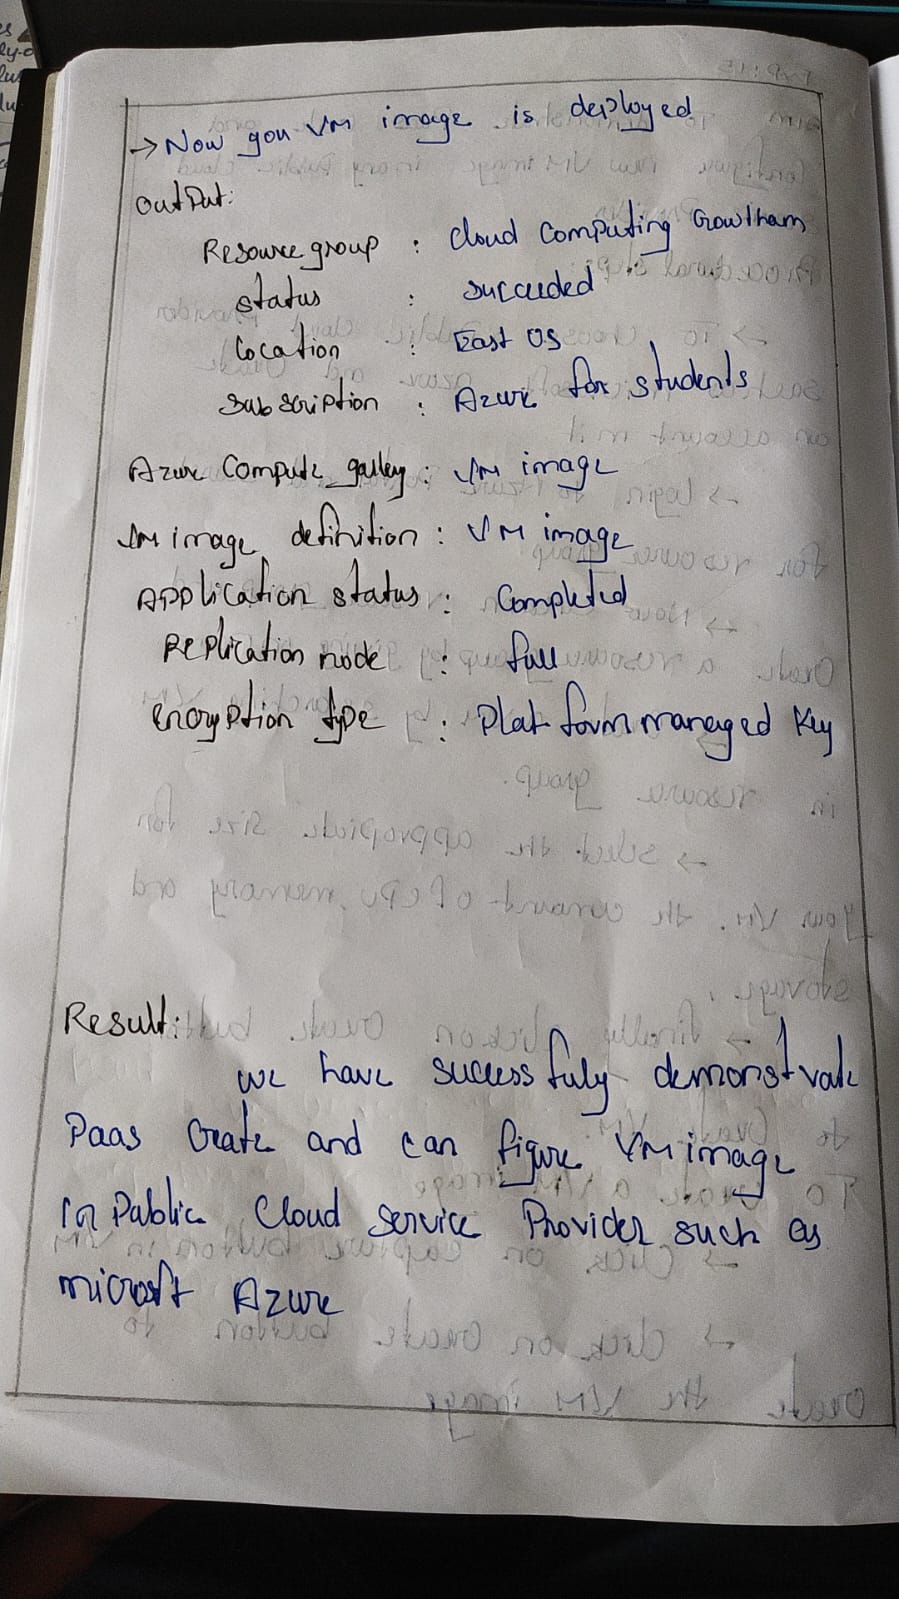 → Now you VM image is deployed
Output:
Resource group : Cloud Computing Gowtham
Status : Succeeded
Location : East US
Subscription : Azure for students
Azure Compute gallery : VM image
VM image definition : VM image
Application status : Completed
Replication node : full
encryption type : Plat form managed Key
Result:
we have success fuly demonstrate
Paas Create and can figure VM image
In Public Cloud Service Provider such as
microsft Azure